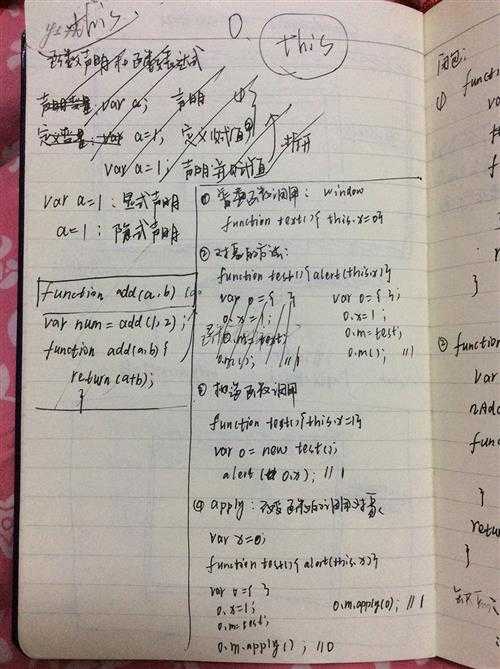 this
0.
this
函数声明和函数表达式
声明变量: var a; 声明
定义变量: var a=1, 定义(赋值)
拆开
var a=1; 声明并赋值
var a=1: 显式声明
a=1: 隐式声明
function add(a,b) {
var num=add(1,2);
function add(a,b){
return(a+b);
}
① 普通函数调用: window
function test(){ this.x=0}
② 对象的方法:
function test(){alert(this.x)}
var o={ }
o.x=1;
o.m=test;
o.m(); //1
var o={ };
o.x=1;
o.m=test;
o.m(); //1
③ 构造函数调用
function test(){this.x=1}
var o=new test();
alert(o.x); //1
④ apply: 改变函数的调用对象
var x=0;
function test(){alert(this.x)}
var o={ }
o.x=1;
o.m=test;
o.m.apply(); //0
o.m.apply(o); //1
闭包:
①
}
② function
var
nAdd
func
}
retur
}